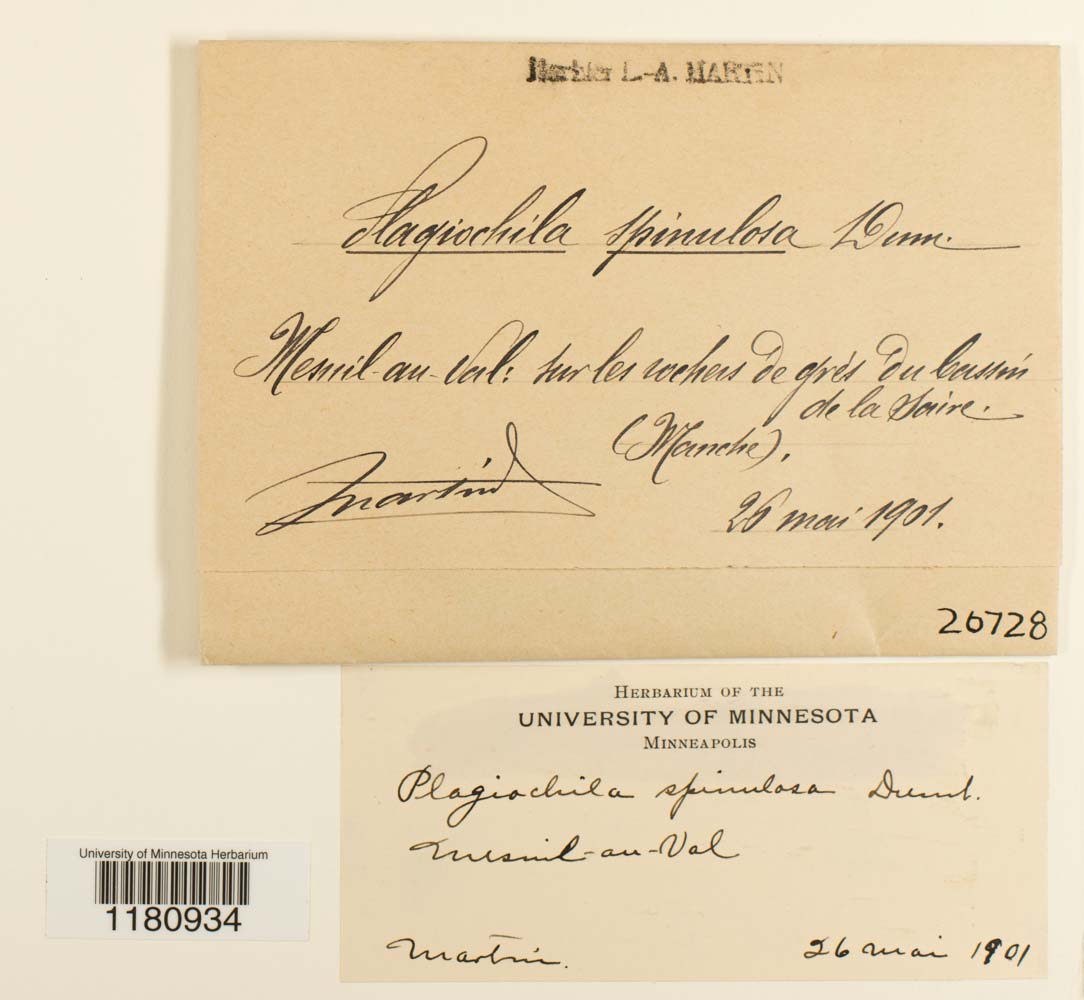 Herbier L.-A. MARTIN
Plagiochila spinulosa Dum.
Mesnil-au-Val: sur les rochers de grés du bassin
de la Saire.
(Manche).
Martin
26 mai 1901.
20728
HERBARIUM OF THE
UNIVERSITY OF MINNESOTA
MINNEAPOLIS
Plagiochila spinulosa Dumt.
Mesnil-au-Val
Martin.
26 mai 1901
University of Minnesota Herbarium
1180934